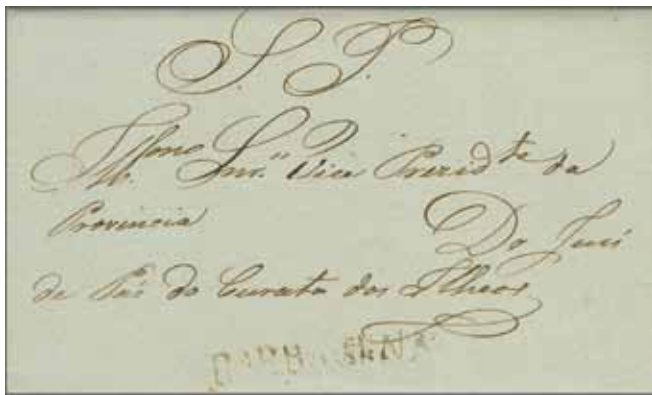 S. P.
Illmo Snr. Vice Prezidte da
Provincia
Do Juis
de Pas do Curato dos Ilheos